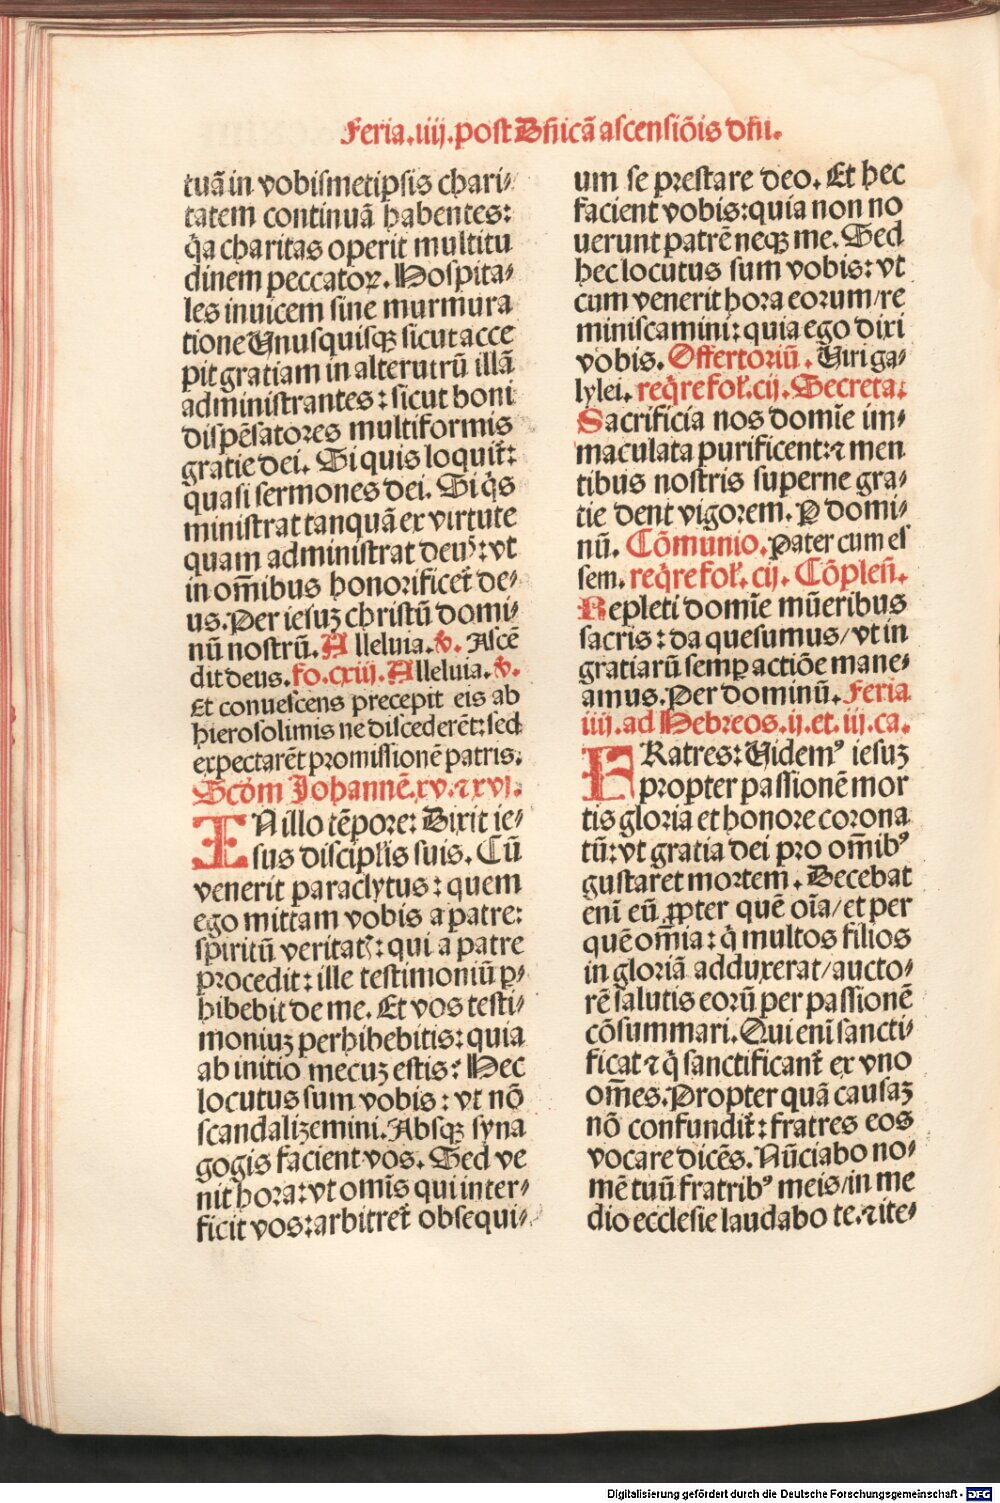 Feria.iiij.post Dñicã ascensiõis dñi.
tuã in vobismetipsis chari⸗
tatem continuã habentes:
q̃a charitas operit multitu
dinem peccatoꝝ. Hospita⸗
les inuicem sine murmura
tione Vnusquisqꝫ sicut acce
pit gratiam in alterutrũ illã
administrantes: sicut boni
dispẽsatores multiformis
gratie dei. Si quis loquit̃:
quasi sermones dei. Si q̃s
ministrat tanquã ex virtute
quam administrat deꝰ: vt
in om̃ibus honorificet̃ de⸗
us. Per iesuꝫ christũ domi⸗
nũ nostrũ. Alleluia. ꝟ. Ascẽ
dit deus. fo.cxiij. Alleluia. ꝟ.
Et conuescens precepit eis ab
hierosolimis ne discederẽt: sed
expectarẽt promissionẽ patris.
Scd̃m Johannẽ.xv.⁊ xvj.
IN illo tẽpore: Dixit ie⸗
sus discipl̃is suis. Cũ
venerit paraclytus: quem
ego mittam vobis a patre:
spiritũ veritatꝭ: qui a patre
procedit: ille testimoniũ ꝑ⸗
hibebit de me. Et vos testi⸗
moniuꝫ perhibebitis: quia
ab initio mecuꝫ estis: Hec
locutus sum vobis: vt nõ
scandalizemini. Absqꝫ syna
gogis facient vos. Sed ve
nit hora: vt omĩs qui inter⸗
ficit vos: arbitret̃ obsequi⸗
um se prestare deo. Et hec
facient vobis: quia non no
uerunt patrẽ neqꝫ me. Sed
hec locutus sum vobis: vt
cum venerit hora eorum/re
miniscamini: quia ego dixi
vobis. Offertoriũ. Viri ga⸗
lylei. req̃re fol̃.cij. Secreta.
Sacrificia nos domĩe im⸗
maculata purificent: ⁊ men
tibus nostris superne gra⸗
tie dent vigorem. P domi⸗
nũ. Cõmunio. Pater cum es
sem. req̃re fol̃. cij. Cõpleñ.
Repleti domĩe mũeribus
sacris: da quesumus/ vt in
gratiarũ semꝑ actiõe mane⸗
amus. Per dominũ. Feria
iiij. ad Hebreos. ij. et. iij. ca.
FRatres: Videmꝰ iesuꝫ
propter passionẽ mor
tis gloria et honore corona
tũ: vt gratia dei pro om̃ibꝰ
gustaret mortem. Decebat
eni eũ ꝓpter quẽ oĩa/ et per
quẽ om̃ia: q̃ multos filios
in gloriã adduxerat/ aucto⸗
rẽ salutis eorũ per passionẽ
cõsummari. Qui eni sancti⸗
ficat ⁊ q̃ sanctificant̃ ex vno
om̃es. Propter quã causaꝫ
nõ confundit̃: fratres eos
vocare dicẽs. Nũciabo no⸗
mẽ tuũ fratribꝰ meis/ in me
dio ecclesie laudabo te. ⁊ ite⸗
Digitalisierung gefördert durch die Deutsche Forschungsgemeinschaft - DFG